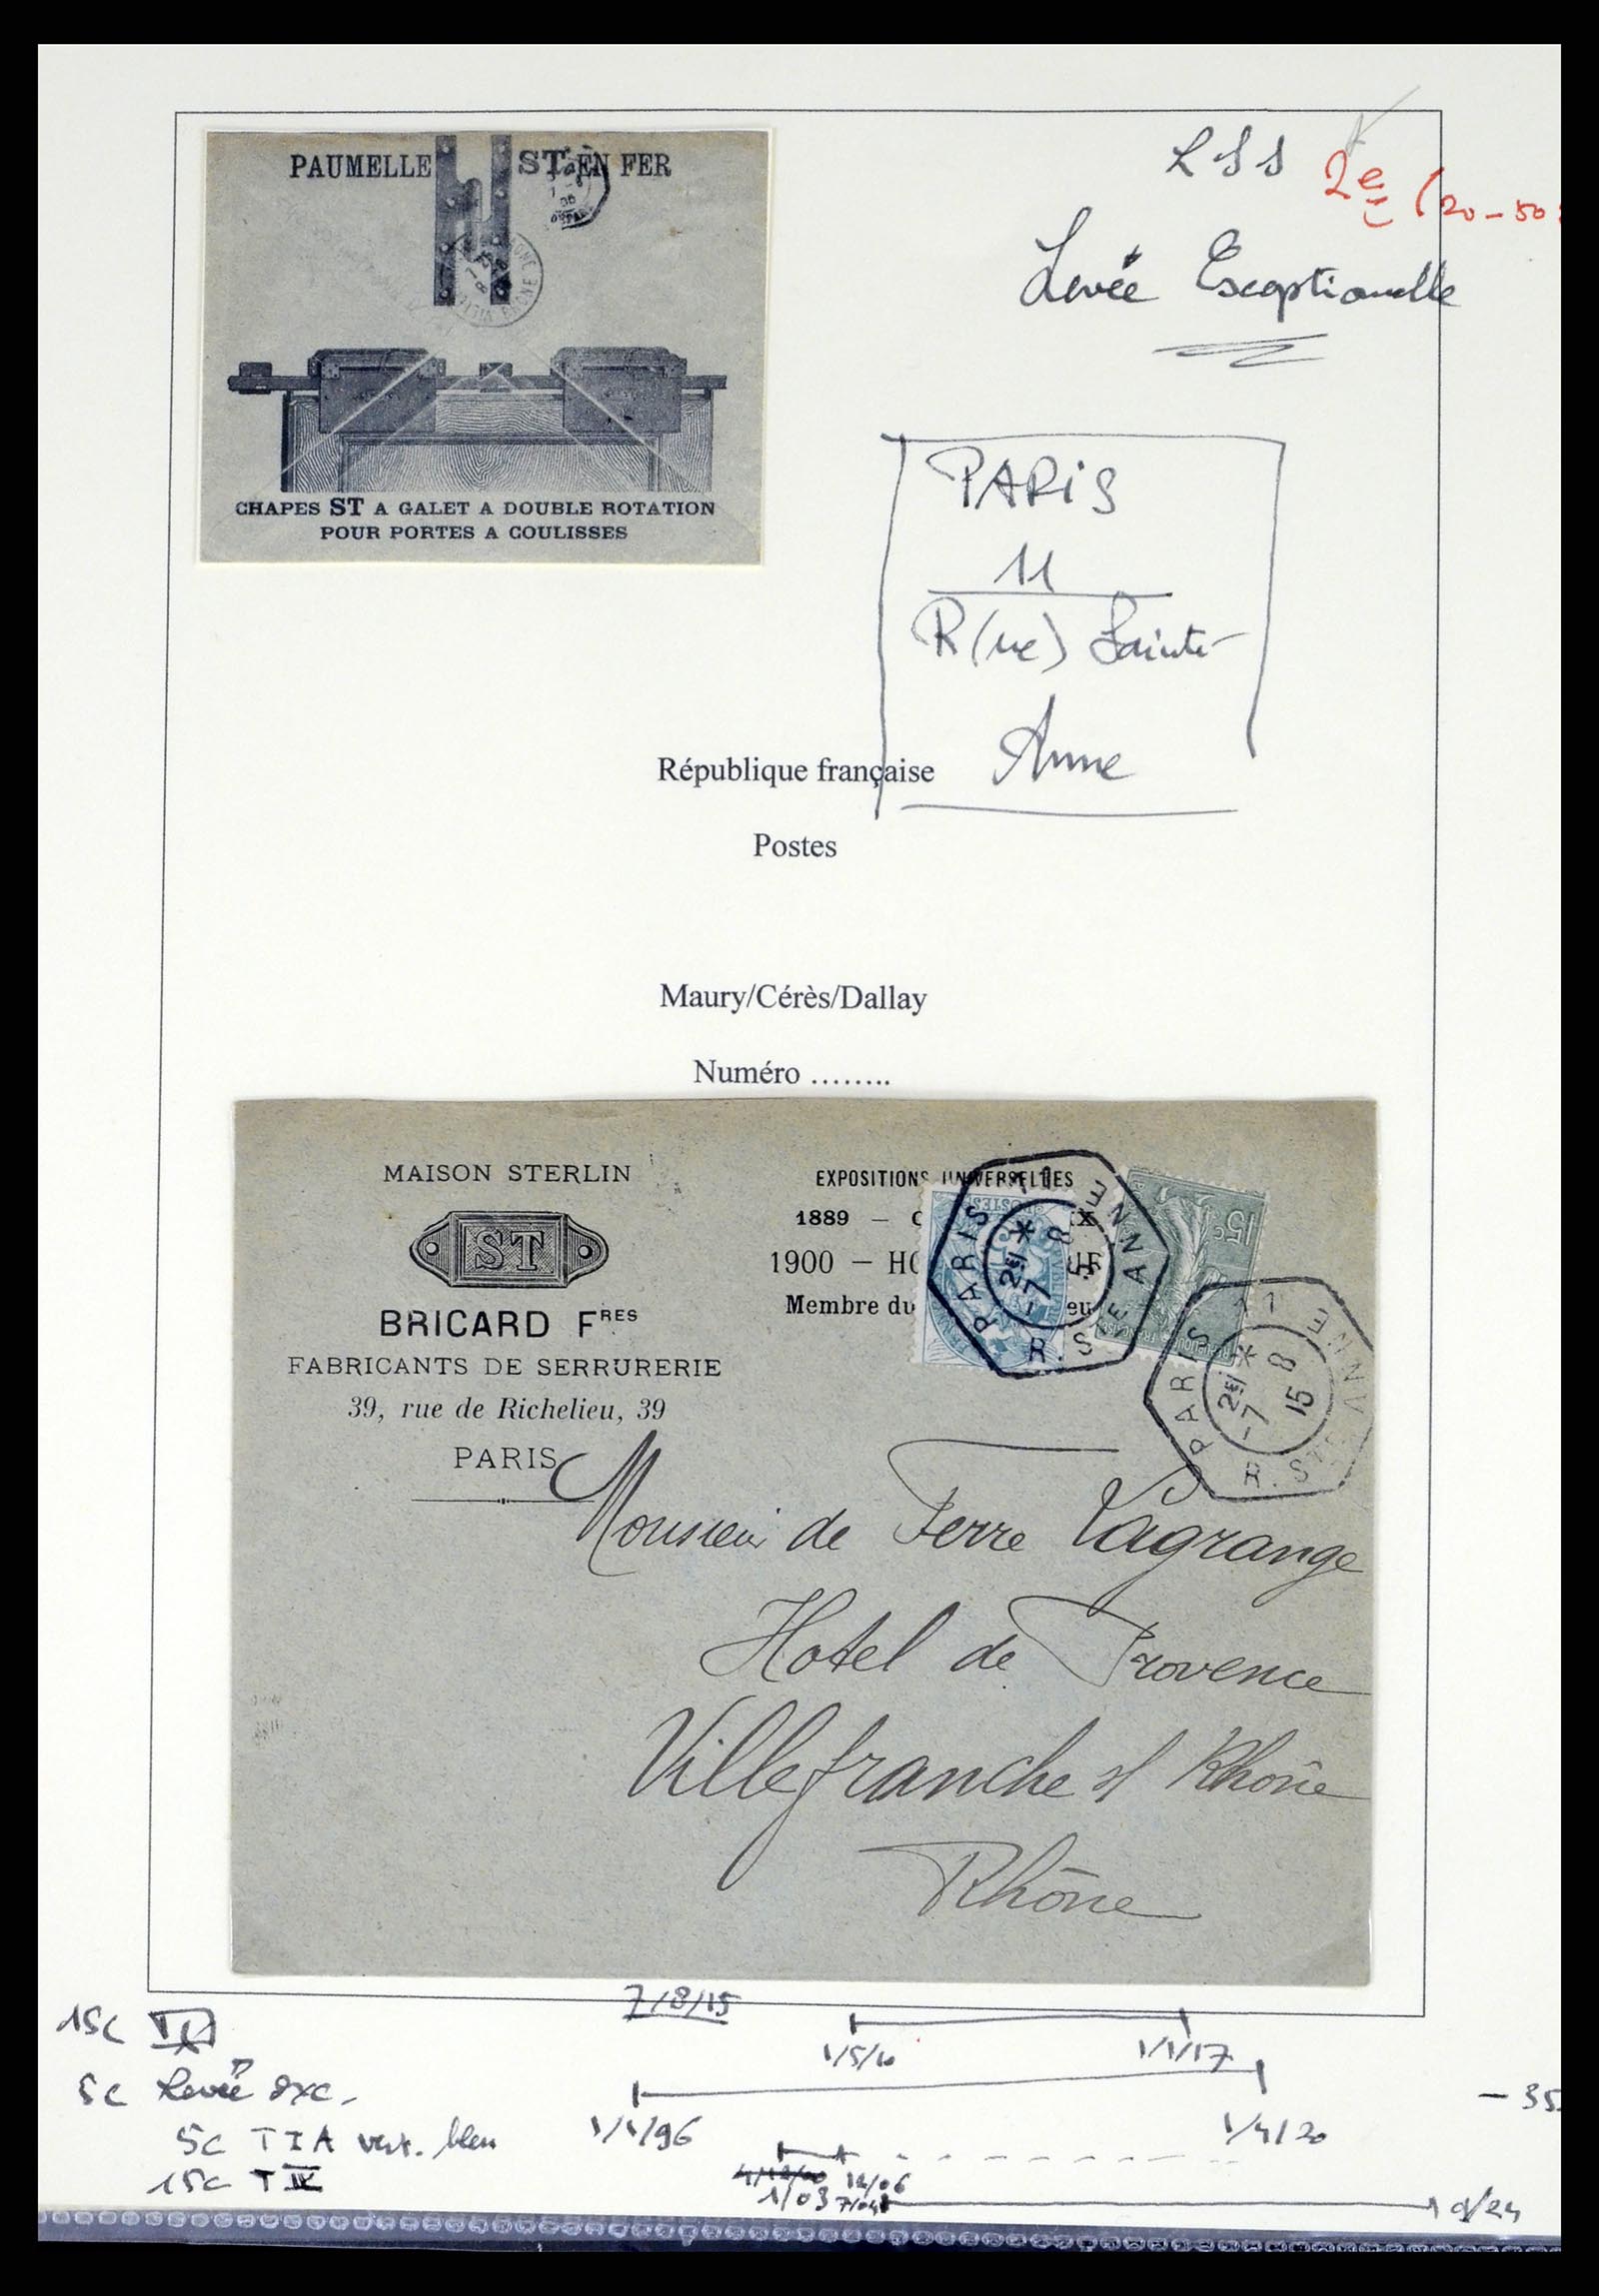 PAUMELLE ST EN FER
CHAPES ST A GALET A DOUBLE ROTATION
POUR PORTES A COULISSES
LSS
2e (20-50
Levée Exceptionnelle
PARIS
11
R(ue) Sainte
Anne
République française
Postes
Maury/Cérès/Dallay
Numéro ........
MAISON STERLIN
ST
BRICARD FRES
FABRICANTS DE SERRURERIE
39, rue de Richelieu, 39
PARIS
EXPOSITIONS UNIVERSELLES
1889 —
1900 — HO
Membre du
15c
PARIS 11 R. STE ANNE
7 8 15
PARIS 11 R. STE ANNE
7 8 15
Monsieur de Ferre Lagrange
Hotel de Provence
Villefranche s/ Rhône
Rhône
7/8/15
15c
1/5/10
1/1/17
5c Levée exc.
- 35
1/1/96
1/4/20
5c T I A vert. bleu
12/06
15c T IV
1/03
9/24